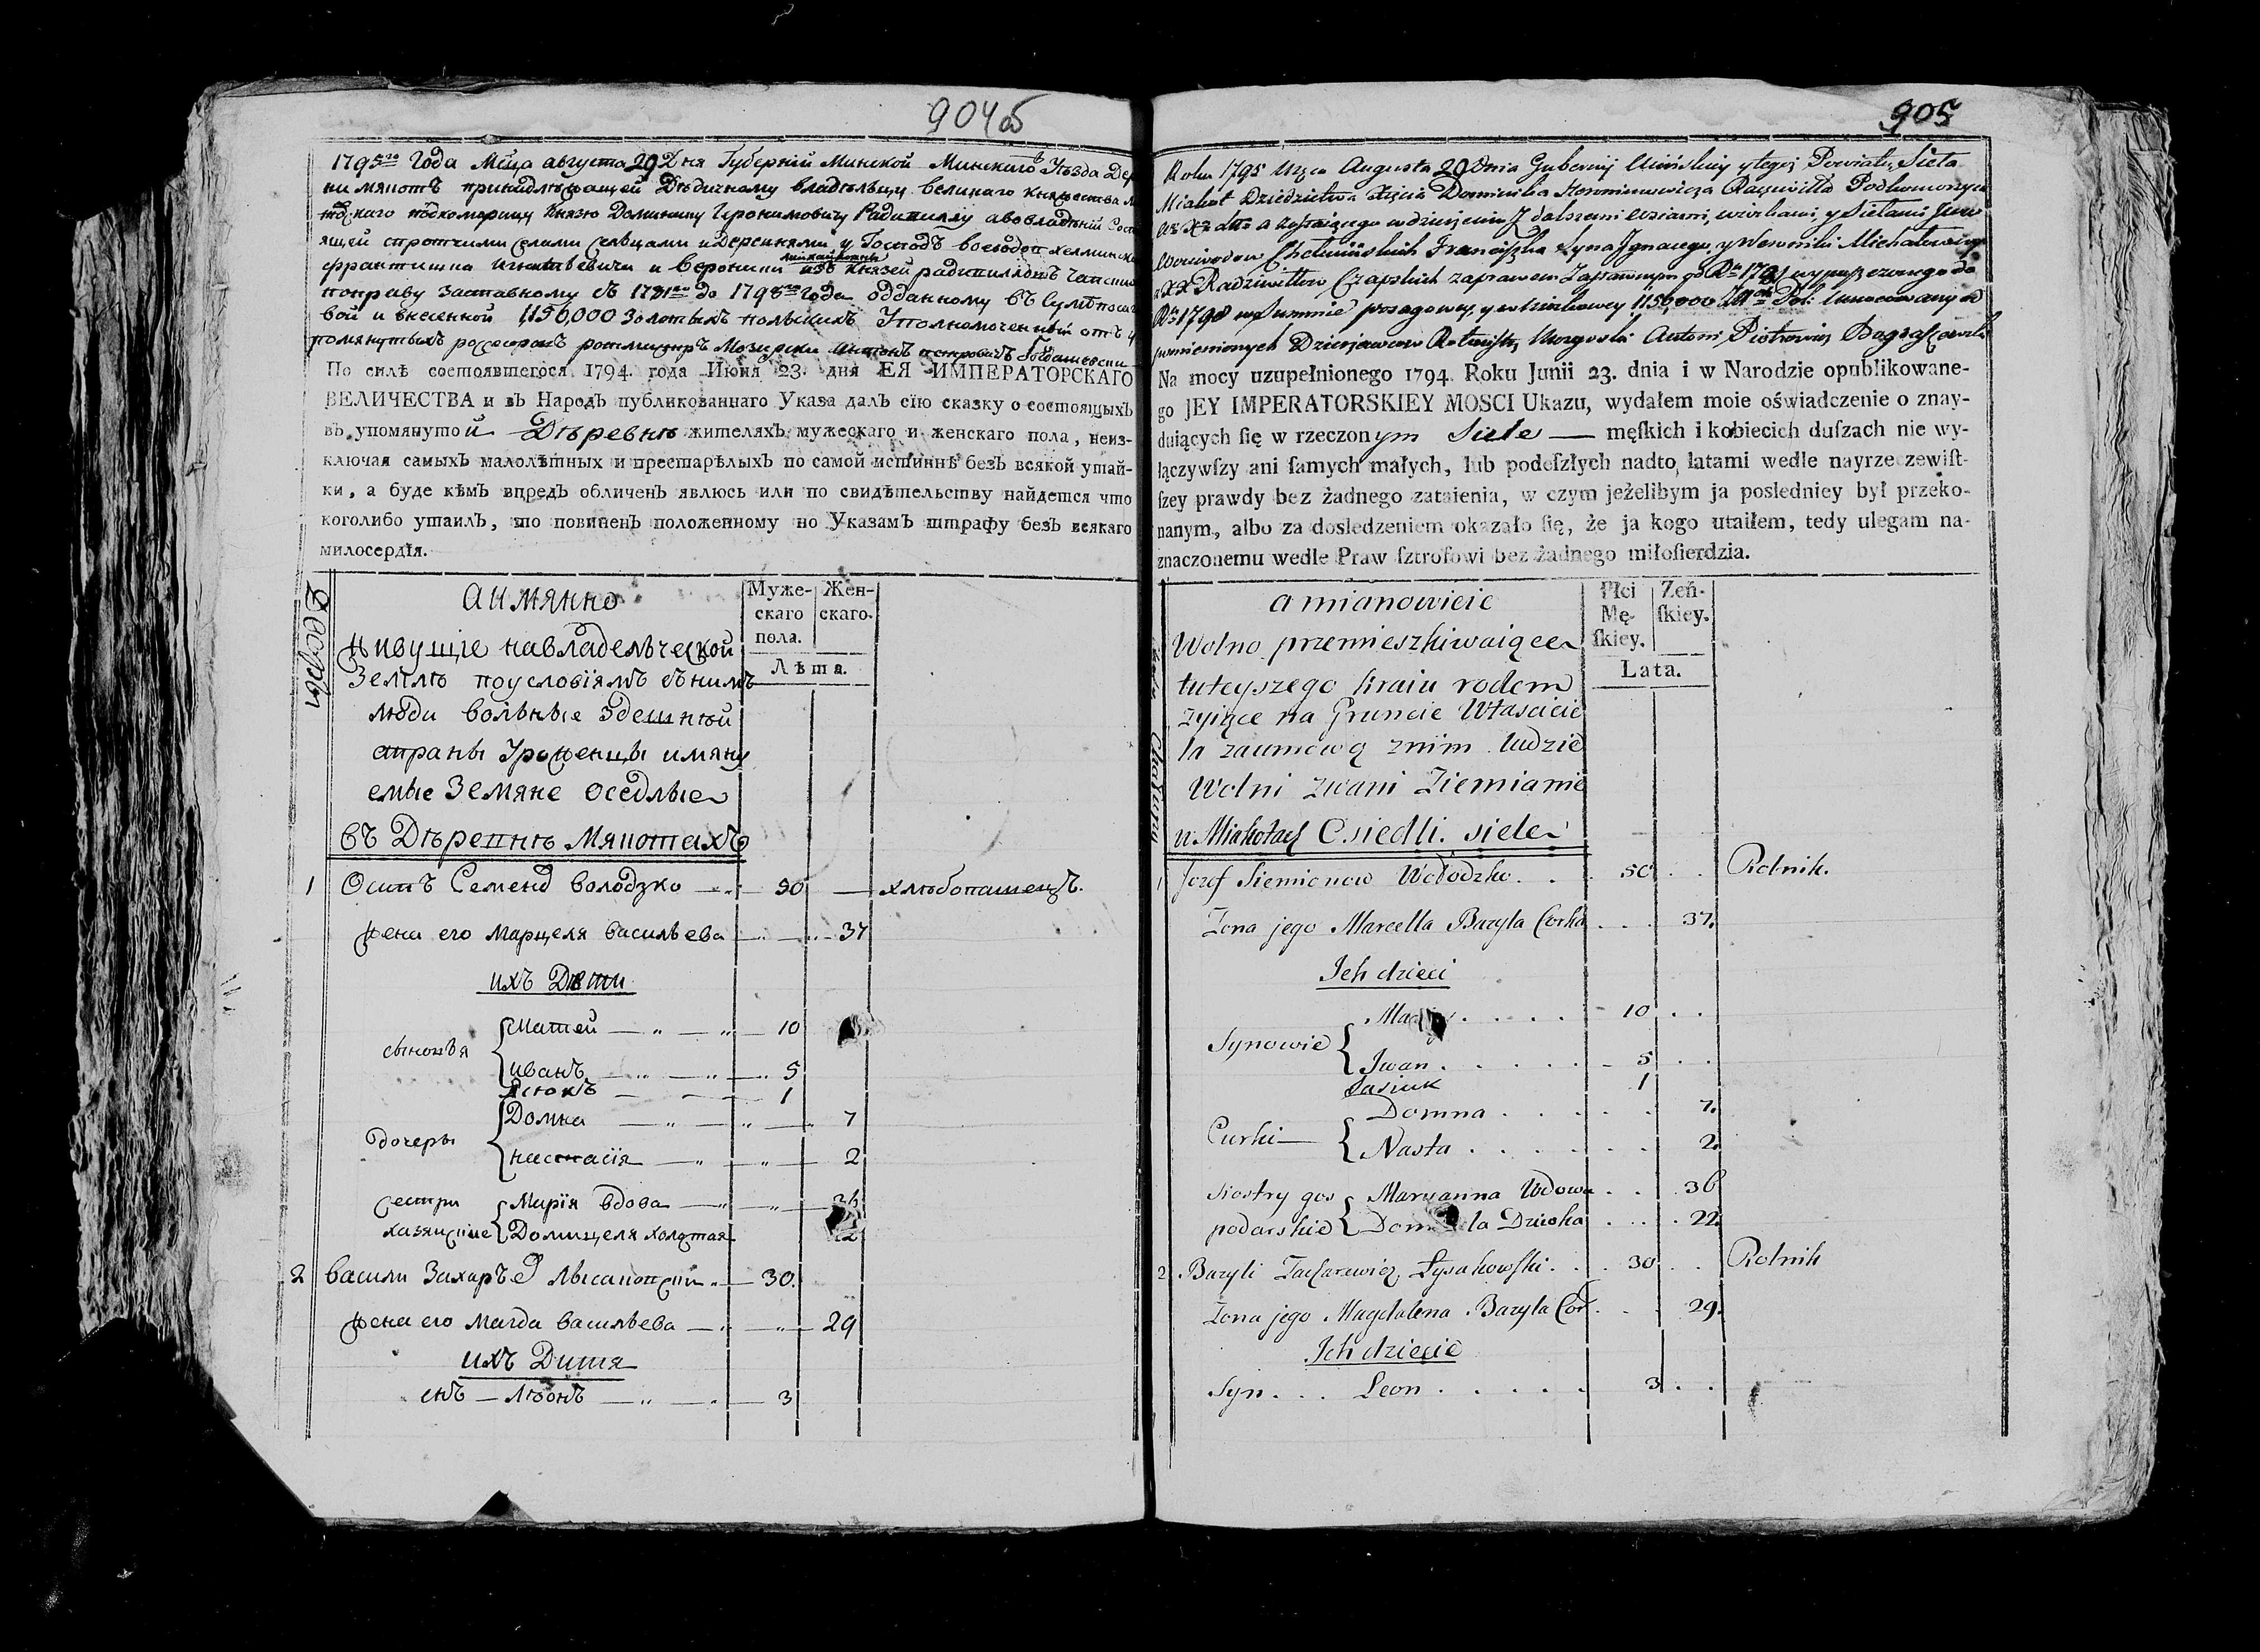 904об
1795го Года Мсца августа 29 Дня Губерніи Минской Минскаго Уѣзда Дер
ни Мякотъ принадлежащей Дѣдичному владѣльцу великаго Княжества
товскаго подкоморищу Князю Доминику Геронимовичу Радивиллу а во владѣніи
ящей с протчими селами селцами и деревнями у Господъ воеводъ хелминскихъ
Франтишка Игнатьевича и Вероники Михайловны изъ Князей радивиловъ Чапскихъ
по праву заставному съ 1781го до 1798го Года отданному въ Сумѣ посаг
вой и внесенной 1,156,000 Золотыхъ польскихъ Уполномоченный отъ
помянутыхъ ротмистръ Мозирски Антонъ петровичъ Богдашевски
По силѣ состоявшегося 1794. года Июня 23. дня ЕЯ ИМПЕРАТОРСКАГО
ВЕЛИЧЕСТВА и въ Народъ публикованнаго Указа далъ сїю сказку о состоящыхъ
въ упомянутой Дѣревнѣ жителяхъ мужескаго и женскаго пола, неиз-
ключая самыхъ малолѣтныхъ и престарѣлыхъ по самой истиннѣ безъ всякой утай-
ки, а буде кѣмъ впредь обличенъ явлюсь или по свидѣтельству найдется что
коголибо утаилъ, то повиненъ положенному по Указамъ штрафу безъ всякаго
милосердїя.
Дворы
а имянно
Муже-скаго пола.
Жен-скаго.
Лѣта.
живущіе на владельческой
Землѣ по условіямъ съ нимъ
люди вольные здешней
страны Уроженцы имяну
емые Земяне оседлые
въ Дѣревнѣ Мякотахъ
1 Осипъ Семенов Володзко 50 хлѣбопашецъ.
жена его Марцеля васильева 37
ихъ Дѣти
сыновья Матей 10
иванъ 5
Ясюкъ 1
дочеры Домна 7
настасія 2
сестри Марія вдова 36
хазяискіие Домицеля холостая
2 васили Захарьев Лысаковски 30.
жена его Магда васильева 29
ихъ Дитя
снъ Лѣонъ 3
905
Roku 1795 Msca Augusta 29 Dnia Gubernij Mińskiey y tegoż Powiatu, Sieła
Miakot Dziedzictwa Xięcia Dominika Hieronimowicza Radziwiłła Podkomorzyca
W. X. Litt. a zostaiącego w dzierżeniu z dalszemi wsiami, y Siełami JWW
Woiewodow Chełmińskich Franciszka Syna Ignacego y Weroniki Michałowny
z XX Radziwiłłow Czapskich za prawem zastawnym od Ru 1781 wypuszczonego do
Ru 1798 w Summie posagowey y wnioskowey 1,156,000 Zł: Pol: Umocowany od
wmienionych Dzierżawcow Rotmistrz Mozyrski Antoni Piotrowicz
Na mocy uzupełnionego 1794. Roku Junii 23. dnia i w Narodzie opublikowane-
go JEY IMPERATORSKIEY MOSCI Ukazu, wydałem moie oświadczenie o znay-
duiących ſię w rzeczonym Siele męſkich i kobiecich duſzach nie wy-
łączywſzy ani ſamych małych, lub podeſzłych nadto latami wedle nayrzeczewiſt-
ſzey prawdy bez żadnego zataienia, w czym jeżelibym ja posledniey był przeko-
nanym, albo za dosledzeniem okazało ſię, że ja kogo utaiłem, tedy ulegam na-
znaczonemu wedle Praw ſztrofowi bez żadnego miłoſierdzia.
Chałupy
a mianowicie
Płci Mę-ſkiey.
Żeń-ſkiey.
Lata.
Wolno przemieszkiwaiące
tuteyszego kraiu rodem
żyiące na Gruncie Własciecie
la za umową z nim ludzie
Wolni zwani Ziemianie
w Miakotach Osiedli. siele
1 Jozef Siemionow Wołodzko 50 Rolnik.
Zona jego Marcella Bazyla Corka 37.
Ich dzieci
Synowie 10
Jwan 5
Jasiuk 1
Curki Domna 7.
Nasta 2.
Siostry gos Maryanna Wdowa 36
podarskie Dziewka 22.
2 Bazyli Zacharewicz Łysakowſki 30 Rolnik
Zona jego Magdalena Bazyla Cor 29.
Ich dziecie
Syn Leon 3